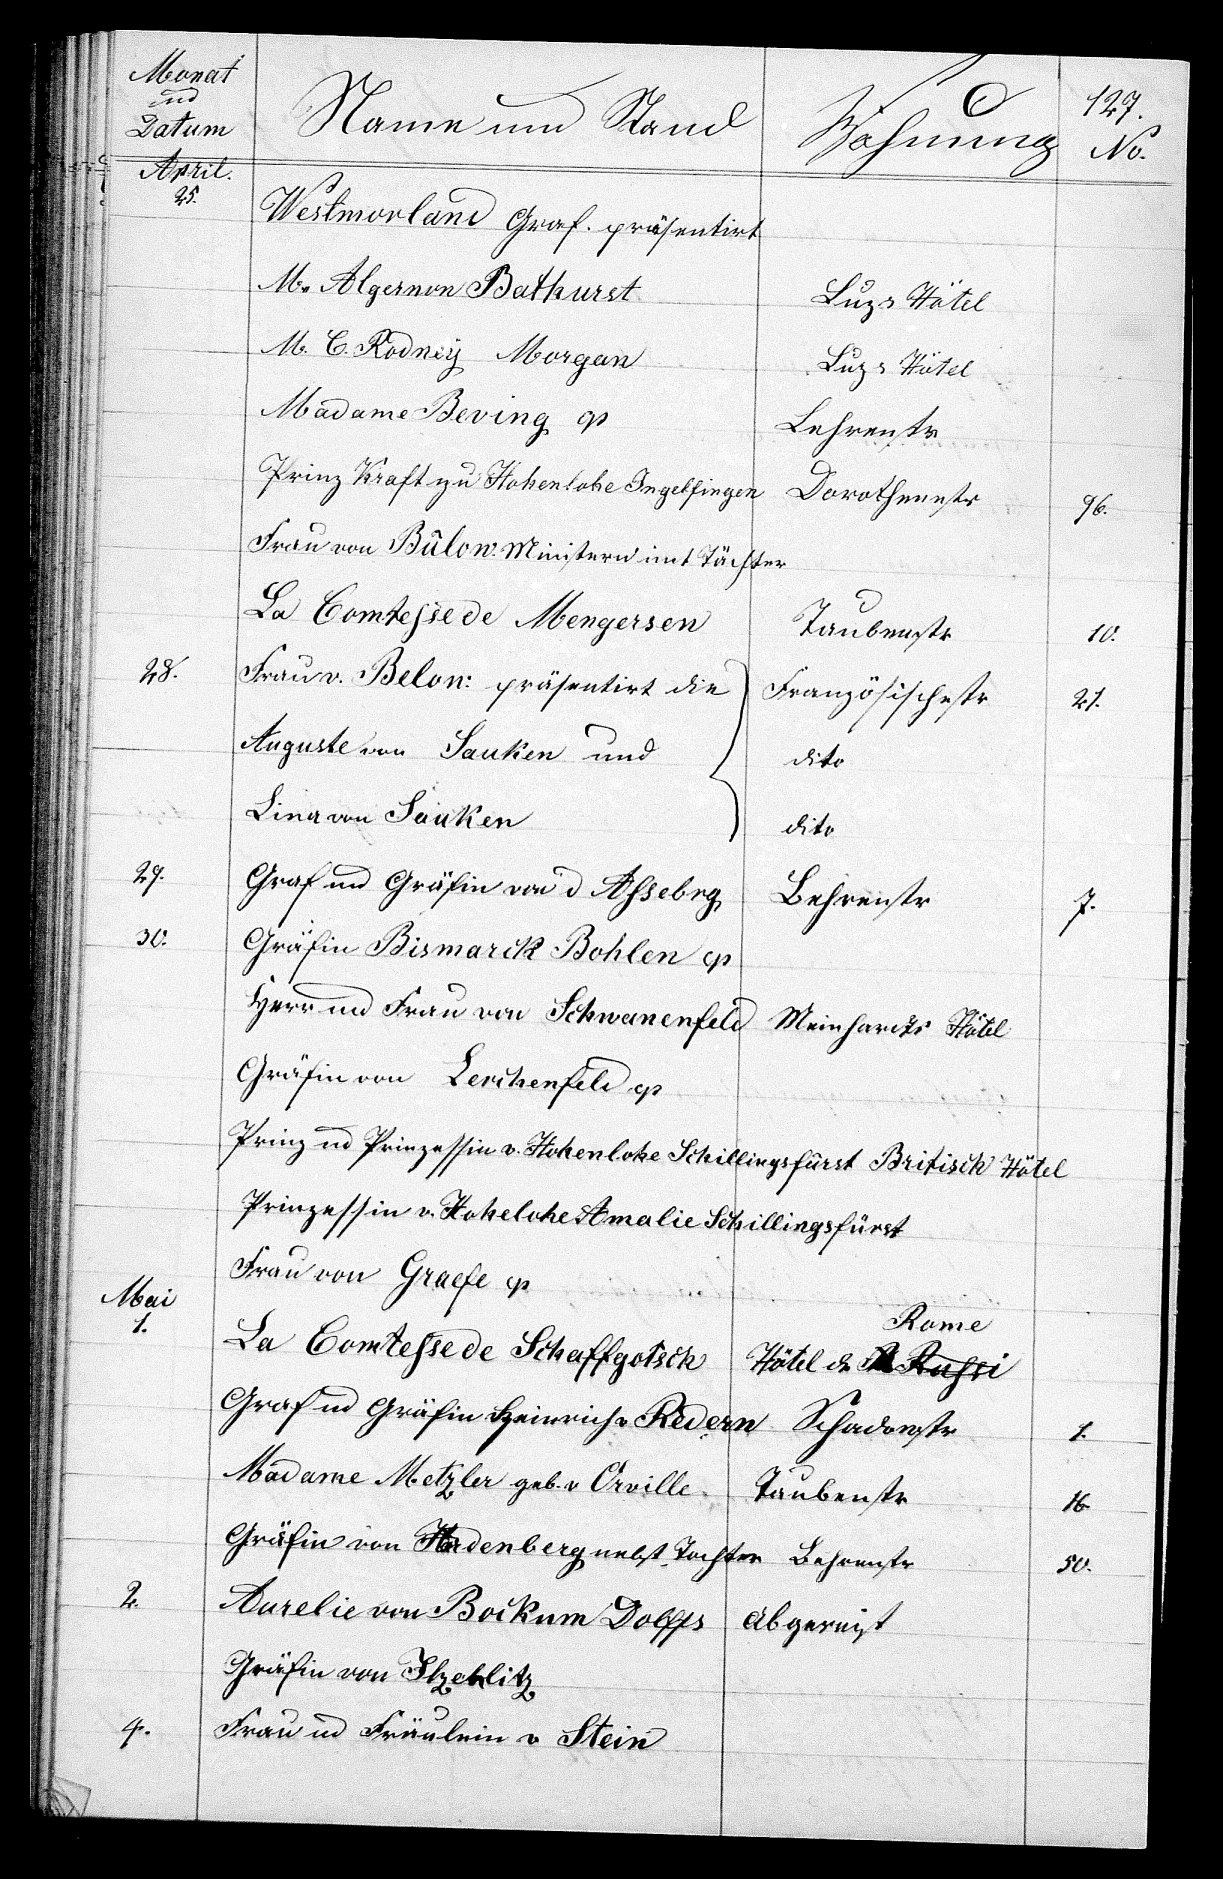 127.
Monat und Datum Name und Stand Wohnung No.
April.
25. Westmorland Graf. präsentirt
Mr Algernon Bathurst Luz's Hôtel
M. C. Rodney Morgan Luz's Hôtel
Madame Beving Behrenstr
Prinz Kraft zu Hohenlohe Ingelfingen Dorotheenstr 96.
Frau von Bülow. Ministern mit Töchter
La Comtesse de Mengersen Taubenstr 10.
28. Frau v. Belon: präsentirt die Französischestr 21.
Auguste von Sauken und dito
Lina von Sauken dito
29. Graf und Gräfin von d Assebrg Behrenstr 7.
30. Gräfin Bismarck Bohlen
Herr und Frau von Schwanenfeld Meinhardts Hôtel
Gräfin von Lerchenfeld
Prinz und Prinzessin v. Hohenlohe Schillingsfürst Britisch Hôtel
Prinzessin v. Hohelohe Amalie Schillingsfürst
Frau von Graefe
Mai Rome
1. La Comtesse de Schaffgotsch Hôtel de Russi
Graf und Gräfin Heinrich v Redern Schadowstr 1.
Madame Metzler geb. v Orville. Taubenstr 16
Gräfin von Hardenberg nebst Tochter Behrenstr 50.
2. Aurelie von Bockum Dolffs abgereist
Gräfin von Itzenblitz
4. Frau und Fräulein v Stein